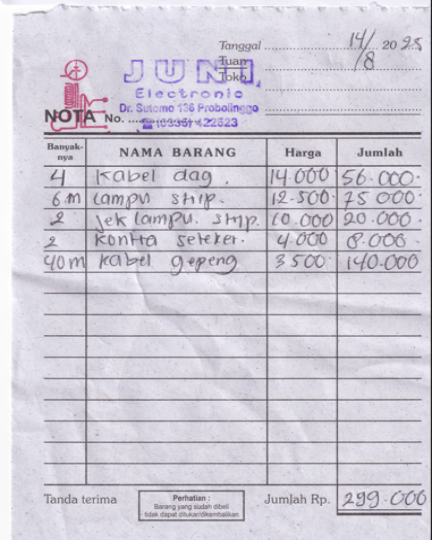 Tanggal 14/8 2025
Tuan
Toko
JUNI
Electronic
Dr. Sutomo 136 Probolinggo
☎ (0335) 422523
NOTA No.
Banyak-nya NAMA BARANG Harga Jumlah
4 kabel dag. 14.000 56.000.
6 m lampu strip. 12.500. 75 000.
2 jek lampu. strip. 10.000 20.000.
2 kontra seteker. 4.000 8.000.
40 m kabel gepeng 3500. 140.000
Tanda terima
Perhatian :
Barang yang sudah dibeli
tidak dapat ditukar/dikembalikan
Jumlah Rp. 299.000